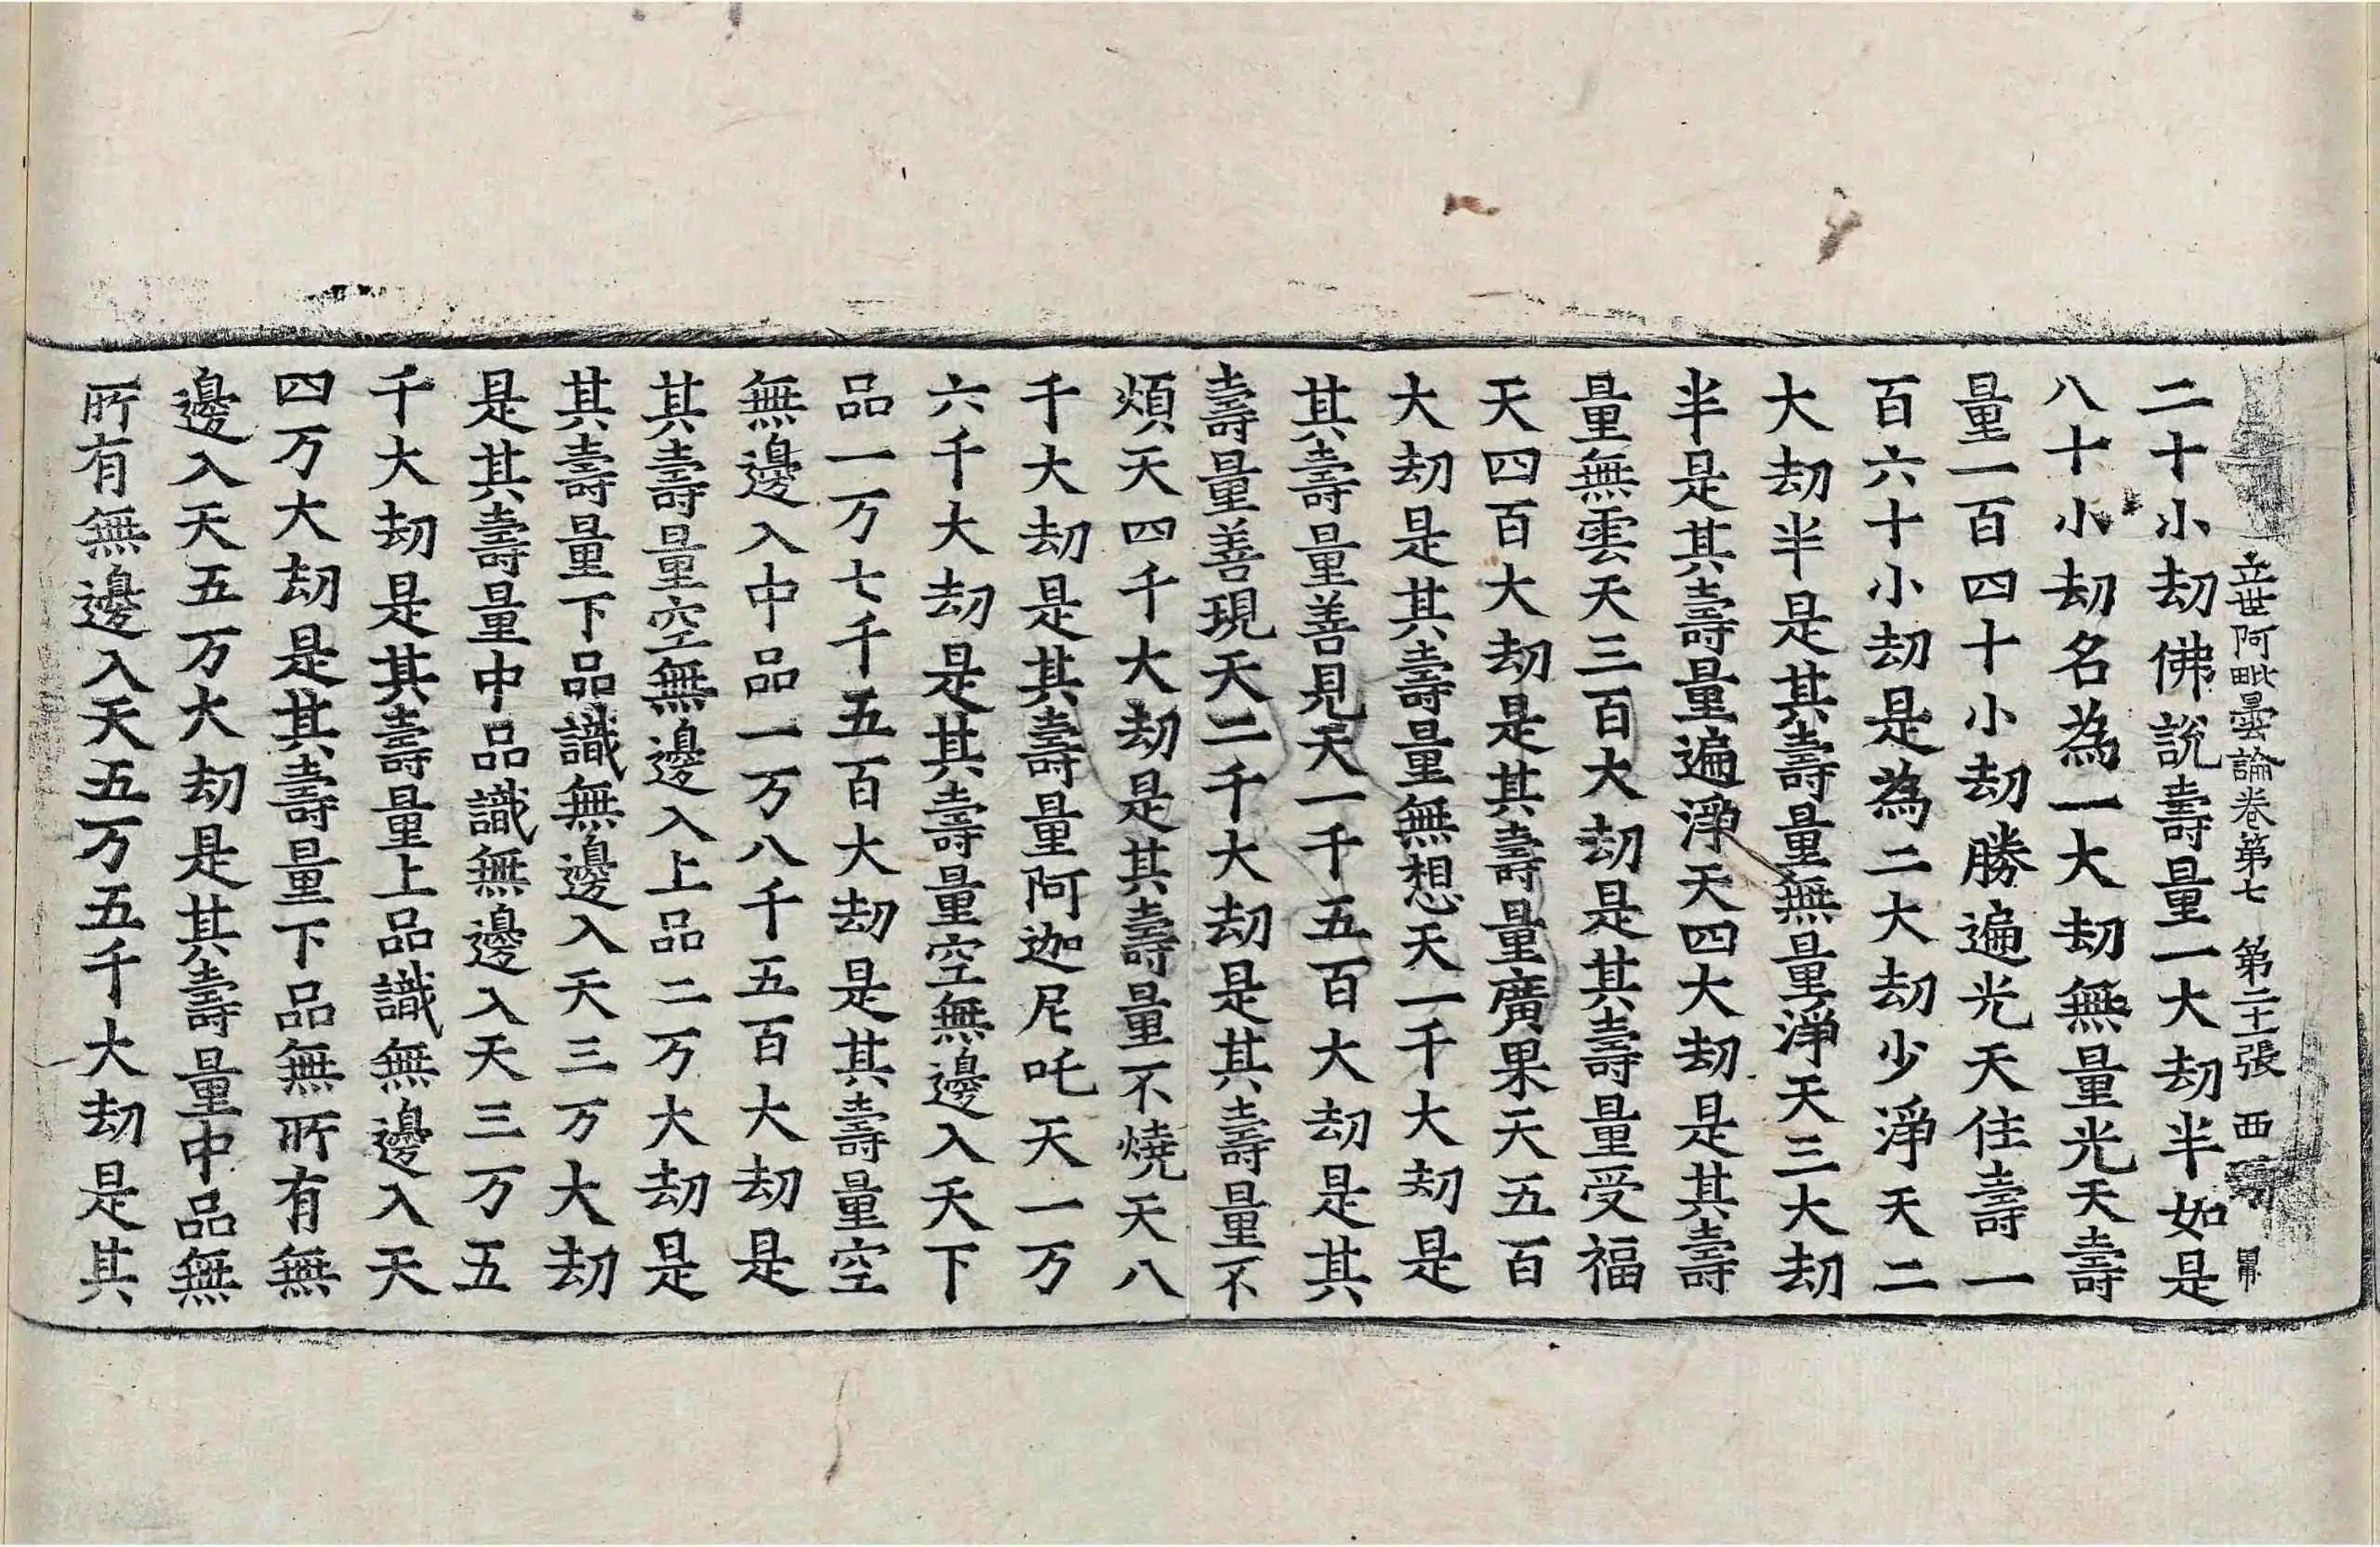 立世阿毗曇論卷第七 第二十張 西
二十小劫佛說壽量一大劫半如是
八十小劫名為一大劫無量光天壽
量一百四十小劫勝遍光天住壽一
百六十小劫是為二大劫少淨天二
大劫半是其壽量無量淨天三大劫
半是其壽量遍淨天四大劫是其壽
量無雲天三百大劫是其壽量受福
天四百大劫是其壽量廣果天五百
大劫是其壽量無想天一千大劫是
其壽量善見天一千五百大劫是其
壽量善現天二千大劫是其壽量不
煩天四千大劫是其壽量不燒天八
千大劫是其壽量阿迦尼吒天一万
六千大劫是其壽量空無邊入天下
品一万七千五百大劫是其壽量空
無邊入中品一万八千五百大劫是
其壽量空無邊入上品二万大劫是
其壽量下品識無邊入天三万大劫
是其壽量中品識無邊入天三万五
千大劫是其壽量上品識無邊入天
四万大劫是其壽量下品無所有無
邊入天五万大劫是其壽量中品無
所有無邊入天五万五千大劫是其